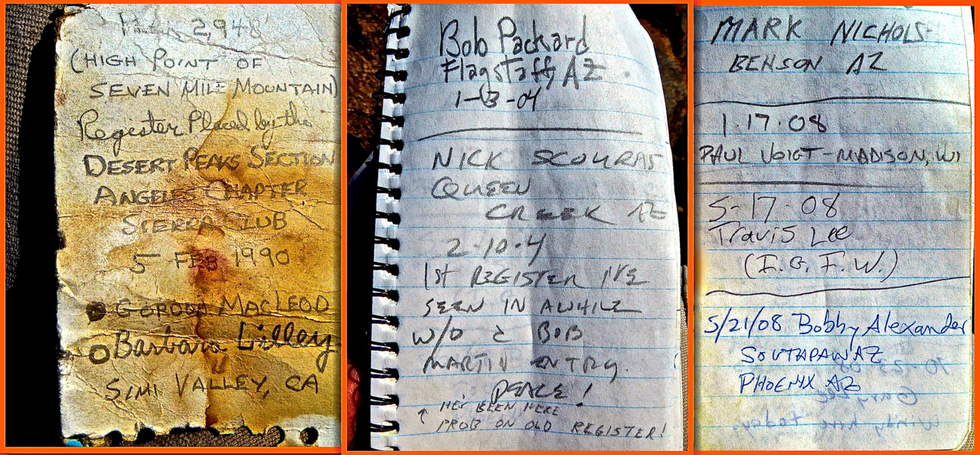 PEAK 2,948
(HIGH POINT OF
SEVEN MILE MOUNTAIN)
Register Placed by the
DESERT PEAKS SECTION
ANGELES CHAPTER
SIERRA CLUB
5 FEB 1990
GORDON MACLEOD
Barbara Lilley
SIMI VALLEY, CA
Bob Packard
Flagstaff, AZ.
1-3-04
NICK SCOURAS
QUEEN
CREEK AZ
2-10-4
1st REGISTER I'VE
SEEN IN AWHILE
W/O a BOB
MARTIN ENTRY.
PEACE!
↑ HE'S BEEN HERE
PROB ON OLD REGISTER!
MARK NICHOLS
BENSON AZ
1-17-08
PAUL VOIGT-MADISON, WI
5-17-08
Travis Lee
(I.G.F.W.)
5/21/08 Bobby Alexander
SOUTHPAWAZ
PHOENYX AZ